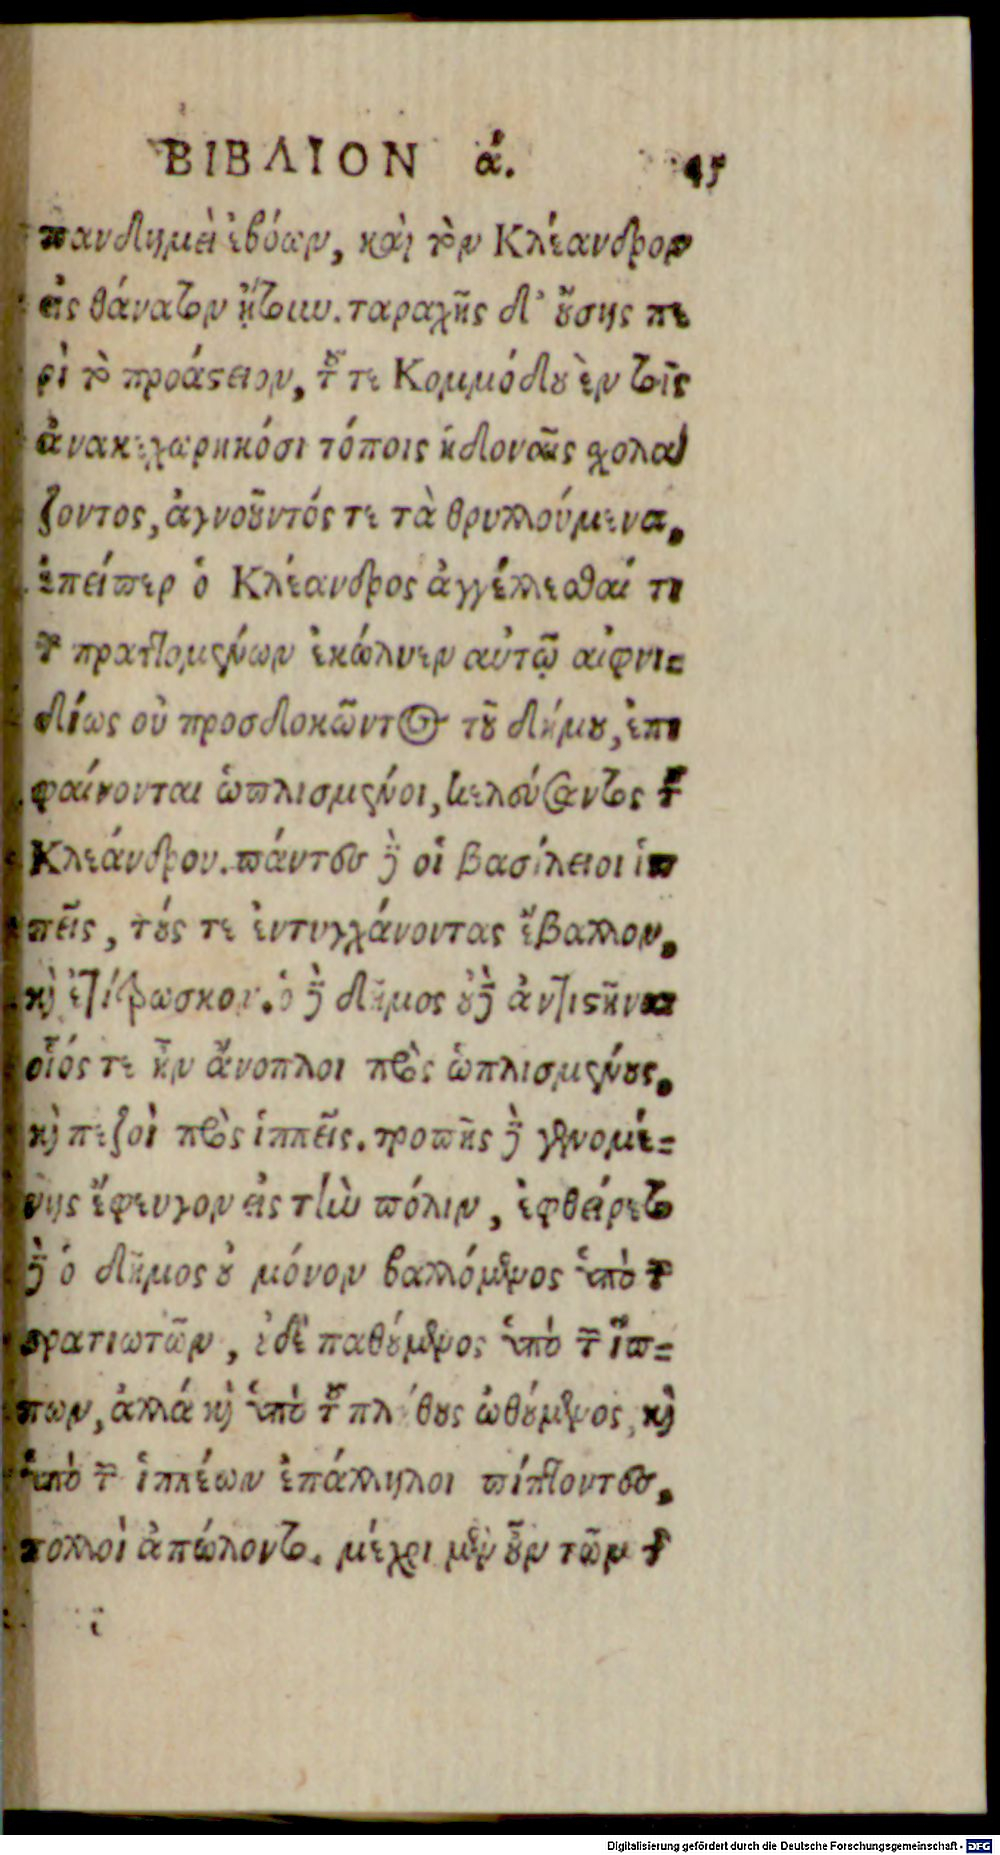 ΒΙΒΛΙΟΝ ά. 45
πανδημεὶ ἐβόων, καὶ τὸν Κλέανδρον
εἰς θάνατον ᾔτουν. ταραχῆς δ' οὔσης πε
ρὶ τὸ προάστειον, τοῦ τε Κομμόδου ἐν τοῖς
ἀνακεχωρηκόσι τόποις ἡδοναῖς χολά
ζοντος, ἀγνοοῦντός τε τὰ θρυλλούμενα,
ἐπείπερ ὁ Κλέανδρος ἀγγέλλεσθαί τι
τῶν πραττομένων ἐκώλυεν αὐτῷ αἰφνι=
δίως οὐ προσδοκῶντος τοῦ δήμου, ἐπι
φαίνονται ὡπλισμένοι, κελεύσαντος τοῦ
Κλεάνδρου. πάντες δὲ οἱ βασίλειοι ἱπ
πεῖς, τούς τε ἐντυγχάνοντας ἔβαλλον,
καὶ ἐτίτρωσκον. ὁ δὲ δῆμος οὐδὲ ἀντιστῆναι
οἷός τε ἦν ἄνοπλοι πρὸς ὡπλισμένους,
καὶ πεζοὶ πρὸς ἱππεῖς. τροπῆς δὲ γενομέ=
νης ἔφευγον εἰς τὴν πόλιν, ἐφθείρετο
δὲ ὁ δῆμος οὐ μόνον βαλλόμενος ὑπὸ τῶν
στρατιωτῶν, οὐδὲ πατούμενος ὑπὸ τῶν ἵπ=
πων, ἀλλὰ καὶ ὑπὸ τοῦ πλήθους ὠθούμενος, καὶ
ὑπὸ τῶν ἱππέων ἐπάλληλοι πίπτοντες,
πολλοὶ ἀπώλοντο. μέχρι μὲν οὖν τῶν